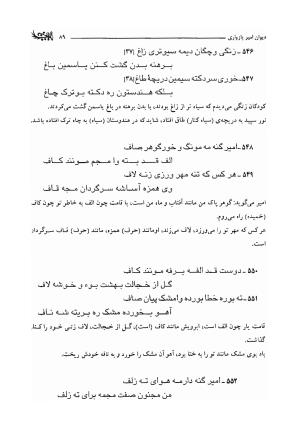 دیوان امیر پازواری ۸۹
۵۴۶ ـ زنگی وچگان دیمه سیوتری زاغ [۳۷]
برهنه بدن گشت کنن یاسمین باغ
۵۴۷ـ خوری سردکته سیمین دریچهٔ طاغ [۳۸]
یا که هندستون ره دکته بوترک چاغ
کودکان زنگی دیدم که سیاه تر از زاغ بودند، با بدن برهنه در باغ یاسمن گشت می‌کردند.
نور سپید به دریچه‌ی (سیاه کنار) طاق افتاد، شاید که در هندوستان (سیاه) به چاه ترک افتاده باشد.
۵۴۸ـ امیر گنه مه مونگ و خورگوهر صاف
الف قد بسته وا مجم مونند کاف
۵۴۹ ـ هر کس که تنه مهر ورزی زنه لاف
وی همزه آساشه سرگردان مجه قاف
امیر می‌گوید: گوهر پاک من مانند آفتاب و ماه من است، با قامت چون الف به خاطر تو چون کاف
(خمیده) راه می‌روم.
هر کس که مهر تو را می‌ورزد، لاف می‌زند، اومانند (حرف) همزه، مانند (حرف) قاف سرگردان
است.
۵۵۰ ـ دوست قد الفه برفه مونند کاف
گل از خجالت بهشت بوء و خوشه لاف
۵۵۱ ـ ته بوره خطا بورده وامشک پیان صاف
آهو بخورده مشک ره بریته شه ناف
قامت یار چون الف است، ابرویش مانند کاف (است)، گل از خجالت، لاف زنی خود را کنار
گذاشت.
باد بوی مشک مانند تو را به ختا برد، آهو آن مشک را خورد و به نافه خودش ریخت.
۵۵۲ ـ امیر گنه دارمه هوای ته زلف
من مجنون صفت مجمه برای ته زلف